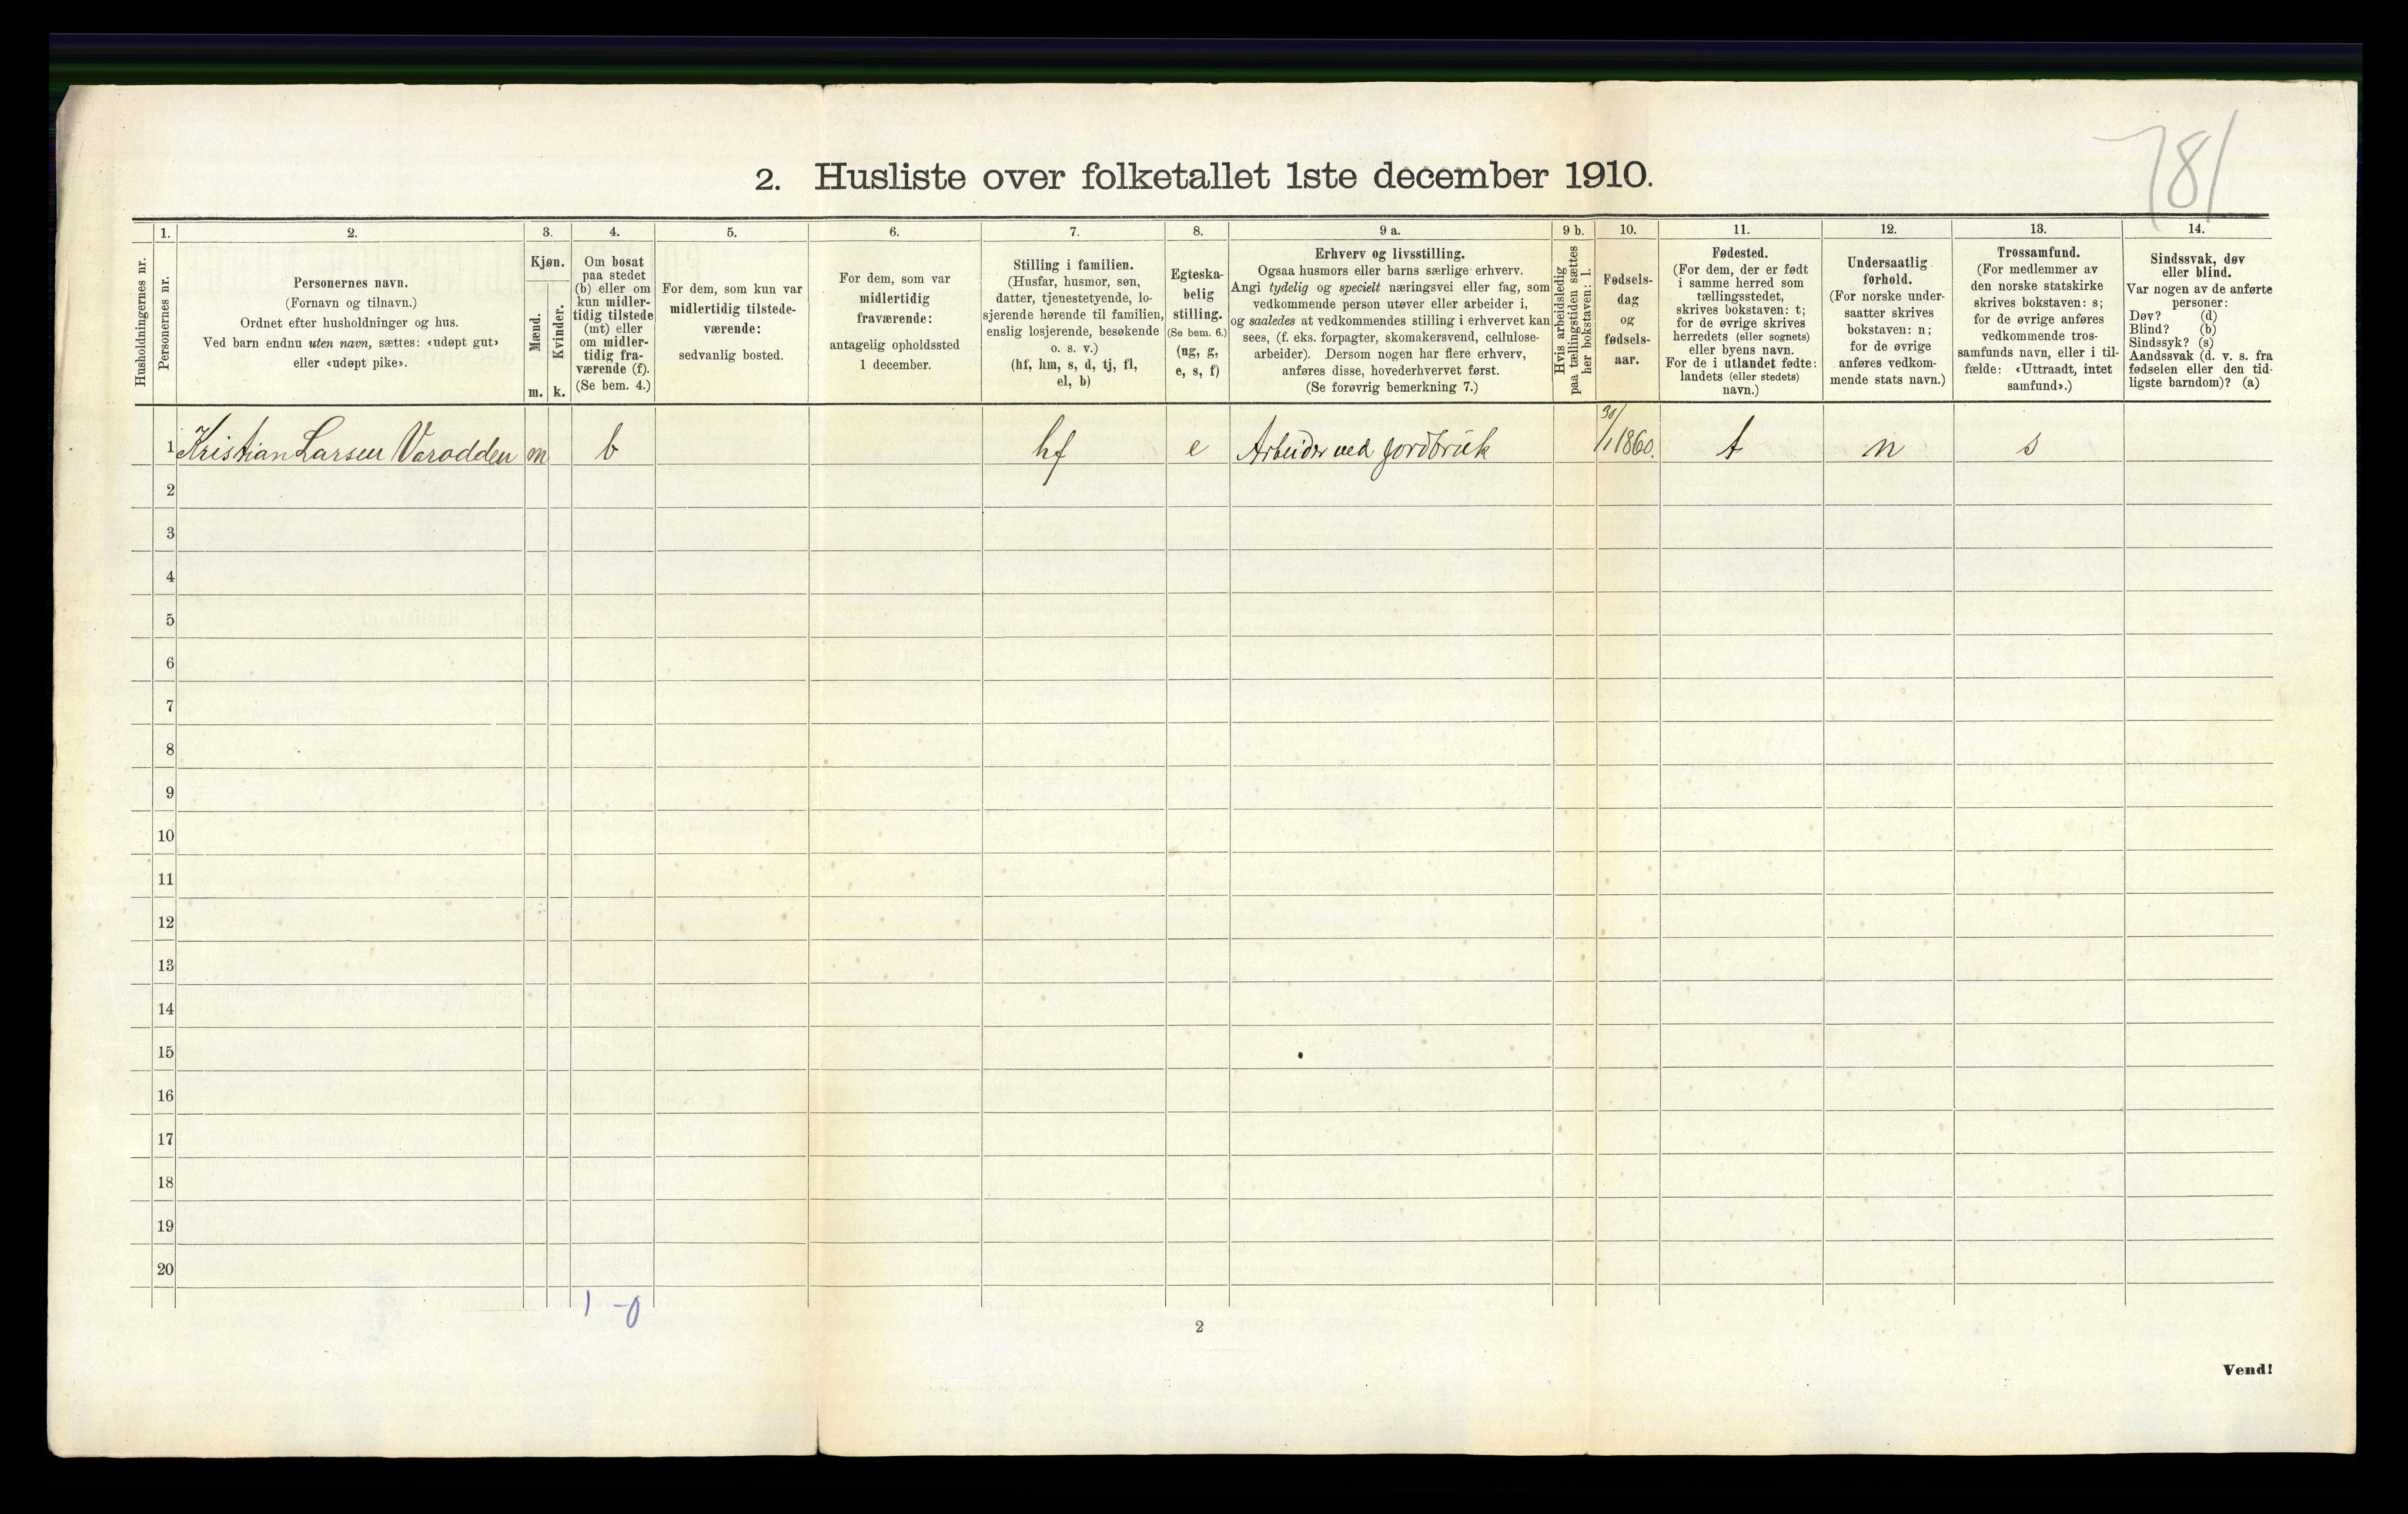 781
2. Husliste over folketallet 1ste december 1910.
Husholdningernes nr.
1.
Personernes nr.
2.
Personernes navn.
(Fornavn og tilnavn.)
Ordnet efter husholdninger og hus.
Ved barn endnu uten navn, sættes: «udøpt gut»
eller «udøpt pike».
3.
Kjøn.
Mænd.
m.
Kvinder.
k.
4.
Om bosat
paa stedet
(b) eller om
kun midler-
tidig tilstede
(mt) eller
om midler-
tidig fra-
værende (f).
(Se bem. 4.)
5.
For dem, som kun var
midlertidig tilstede-
værende:
sedvanlig bosted.
6.
For dem, som var
midlertidig
fraværende:
antagelig opholdssted
1 december.
7.
Stilling i familien.
(Husfar, husmor, søn,
datter, tjenestetyende, lo-
sjerende hørende til familien,
enslig losjerende, besøkende
o. s. v.)
(hf, hm, s, d, tj, fl,
el, b)
8.
Egteska-
belig
stilling.
(Se bem. 6.)
(ug, g,
e, s, f)
9 a.
Erhverv og livsstilling.
Ogsaa husmors eller barns særlige erhverv.
Angi tydelig og specielt næringsvei eller fag, som
vedkommende person utøver eller arbeider i,
og saaledes at vedkommendes stilling i erhvervet kan
sees, (f. eks. forpagter, skomakersvend, cellulose-
arbeider). Dersom nogen har flere erhverv,
anføres disse, hovederhvervet først.
(Se forøvrig bemerkning 7.)
9 b.
Hvis arbeidsledig
paa tællingstiden sættes
her bokstaven: l.
10.
Fødsels-
dag
og
fødsels-
aar.
11.
Fødested.
(For dem, der er født
i samme herred som
tællingsstedet,
skrives bokstaven: t;
for de øvrige skrives
herredets (eller sognets)
eller byens navn.
For de i utlandet fødte:
landets (eller stedets)
navn.)
12.
Undersaatlig
forhold.
(For norske under-
saatter skrives
bokstaven: n;
for de øvrige
anføres vedkom-
mende stats navn.)
13.
Trossamfund.
(For medlemmer av
den norske statskirke
skrives bokstaven: s;
for de øvrige anføres
vedkommende tros-
samfunds navn, eller i til-
fælde: «Uttraadt, intet
samfund».)
14.
Sindssvak, døv
eller blind.
Var nogen av de anførte
personer:
Døv? (d)
Blind? (b)
Sindssyk? (s)
Aandssvak (d. v. s. fra
fødselen eller den tid-
ligste barndom)? (a)
1 Kristian Larsen Varodden m b hf e Arbeider ved jordbruk 30/1 1860. t n s
2
3
4
5
6
7
8
9
10
11
12
13
14
15
16
17
18
19
20
1 - 0
2
Vend!